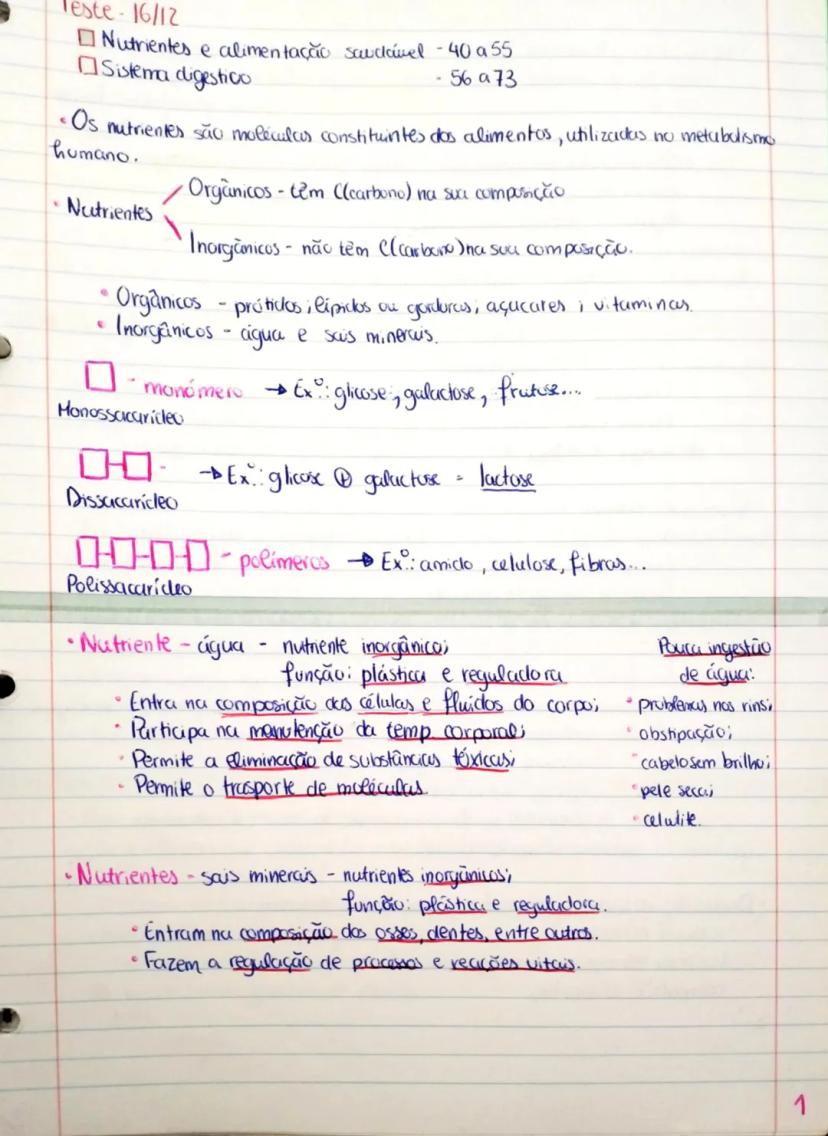 Teste - 16/12
Nutrientes e alimentação saudável - 40 a 55
Sistema digestico - 56 a 73
• Os nutrientes são moléculas constituintes dos alimentos, utilizadas no metabolismo
humano.
• Nutrientes
Orgânicos - têm C(carbono) na sua composição
Inorgânicos - não têm C(carbono) na sua composição.
• Orgânicos - prótidos; lípidos ou gorduras; açucares; vitaminas.
• Inorgânicos - água e sais minerais.
- monómero → Exº: glicose, galactose, frutose...
Monossacarídeo
- → Exº: glicose + galactose = lactose
Dissacarídeo
- polímeros → Exº: amido, celulose, fibras...
Polissacarídeo
• Nutriente - água - nutriente inorgânico;
função: plástica e reguladora
• Entra na composição das células e fluídos do corpo;
• Participa na manutenção da temp corporal;
• Permite a eliminação de substâncias tóxicas;
• Permite o trasporte de moléculas.
Pouca ingestão
de água:
• problemas nos rins;
• obstipação;
• cabelo sem brilho;
• pele seca;
• celulite.
• Nutrientes - sais minerais - nutrientes inorgânicos;
função: plástica e reguladora.
• Entram na composição dos osses, dentes, entre outros.
• Fazem a regulação de processos e reações vitais.
1